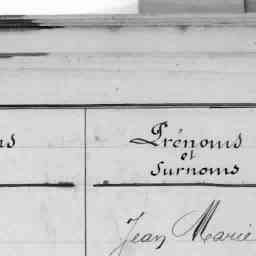 Prénoms
et
Surnoms
Jean Marie